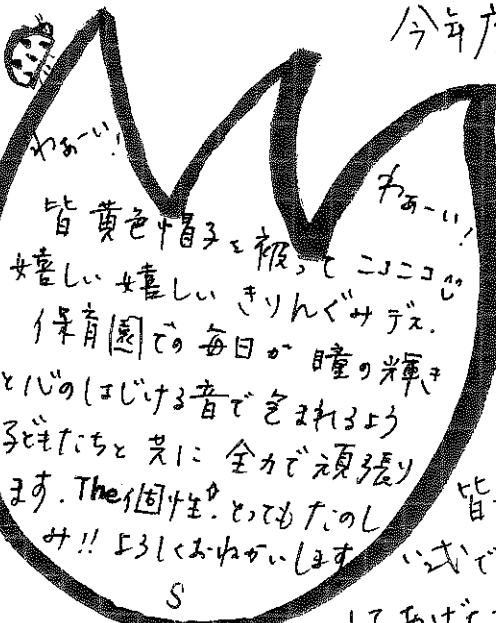 今年
わぁーい!
わぁーい!
皆黄色帽子を被ってニコニコ
嬉しい嬉しいきりんぐみデス.
保育園での毎日が瞳の輝き
と心のはじける音で包まれるよう
子どもたちと共に全力で頑張り
ます.The個性!とってもたのし
み!!よろしくおねがいします
S
皆
い式で
してあげた